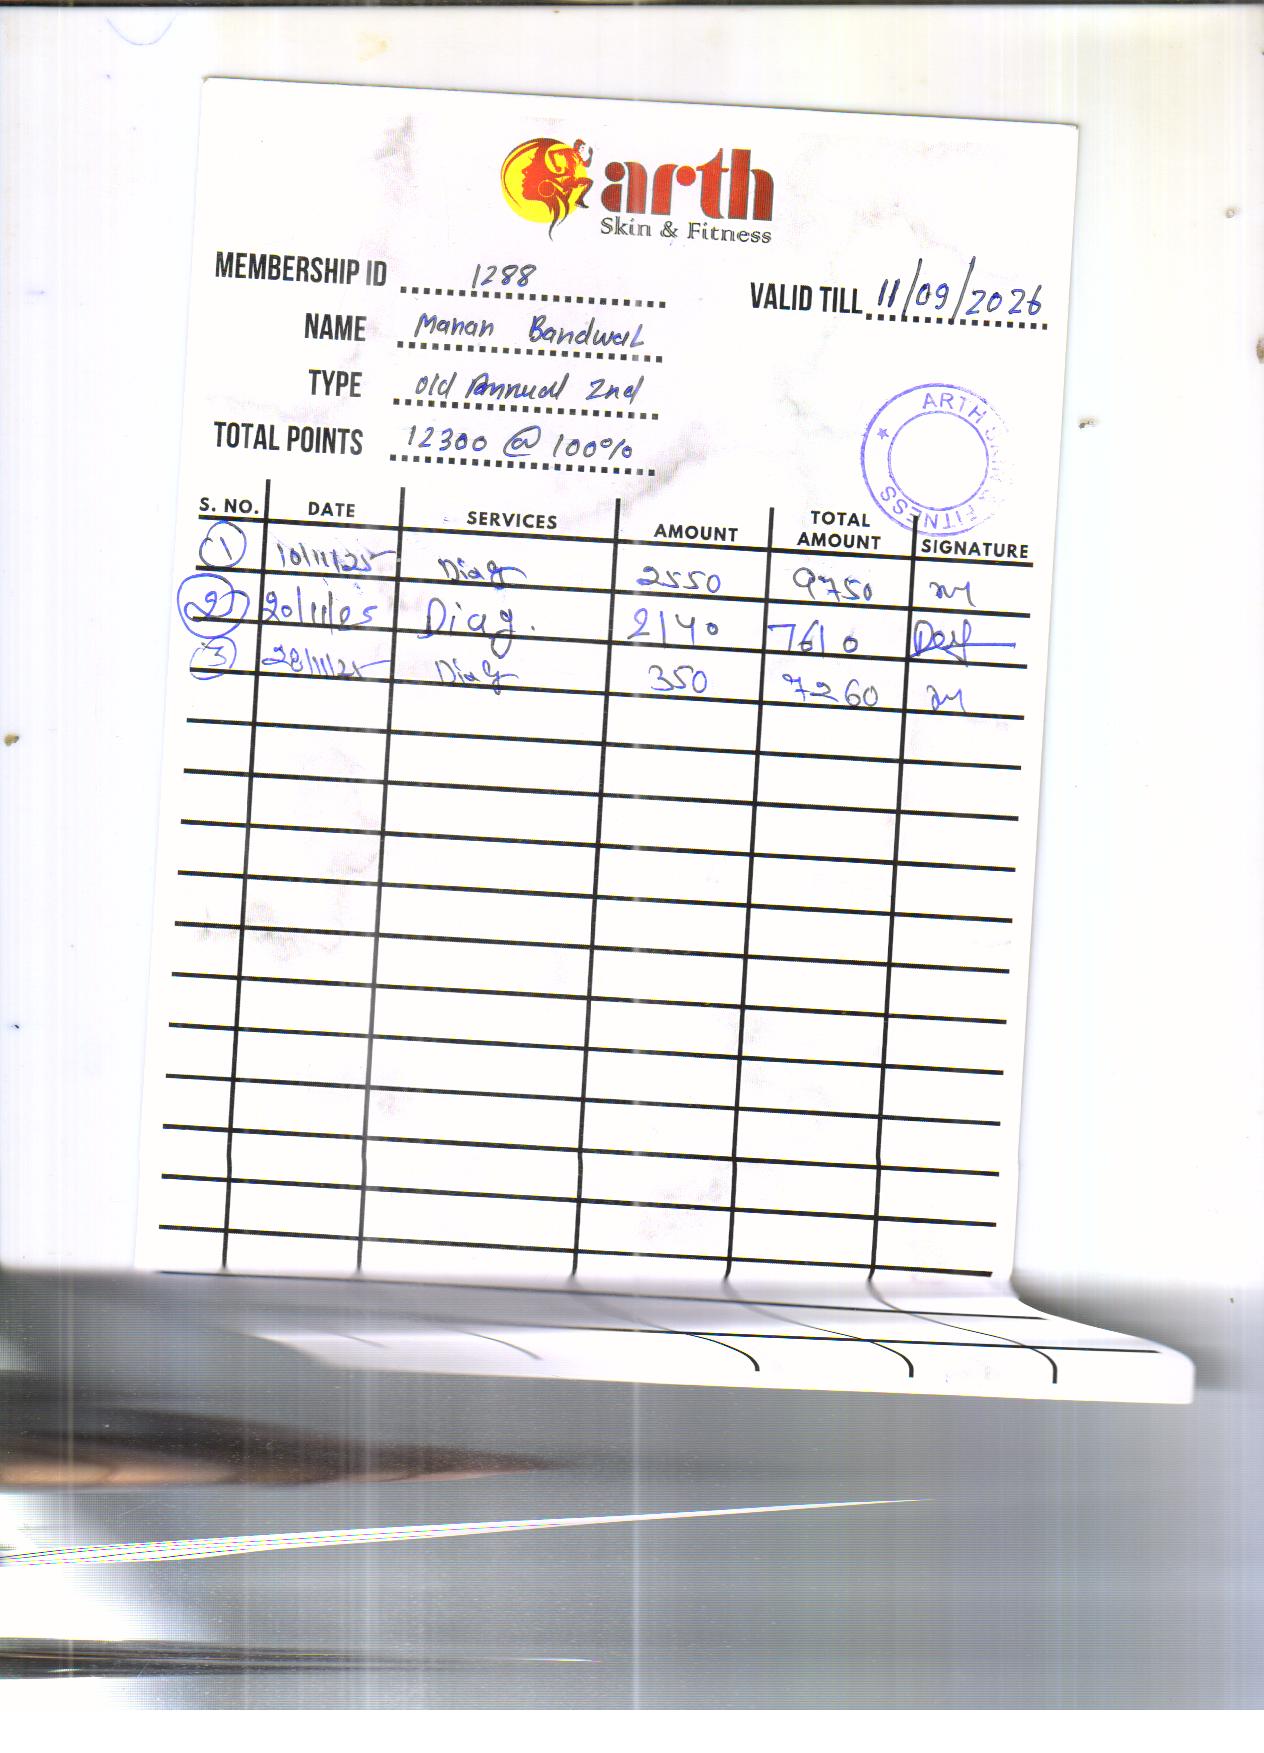 arth
Skin & Fitness
MEMBERSHIP ID 1288
VALID TILL 11/09/2026
NAME Manan Bandwal
TYPE Old Annual 2nd
TOTAL POINTS 12300 @ 100%
ARTH SKIN & FITNESS
S. NO. DATE SERVICES AMOUNT TOTAL AMOUNT SIGNATURE
1 10/11/25 Diag 2550 9750
2 20/11/25 Diag. 2140 7610
3 28/11/25 Diag 350 7260